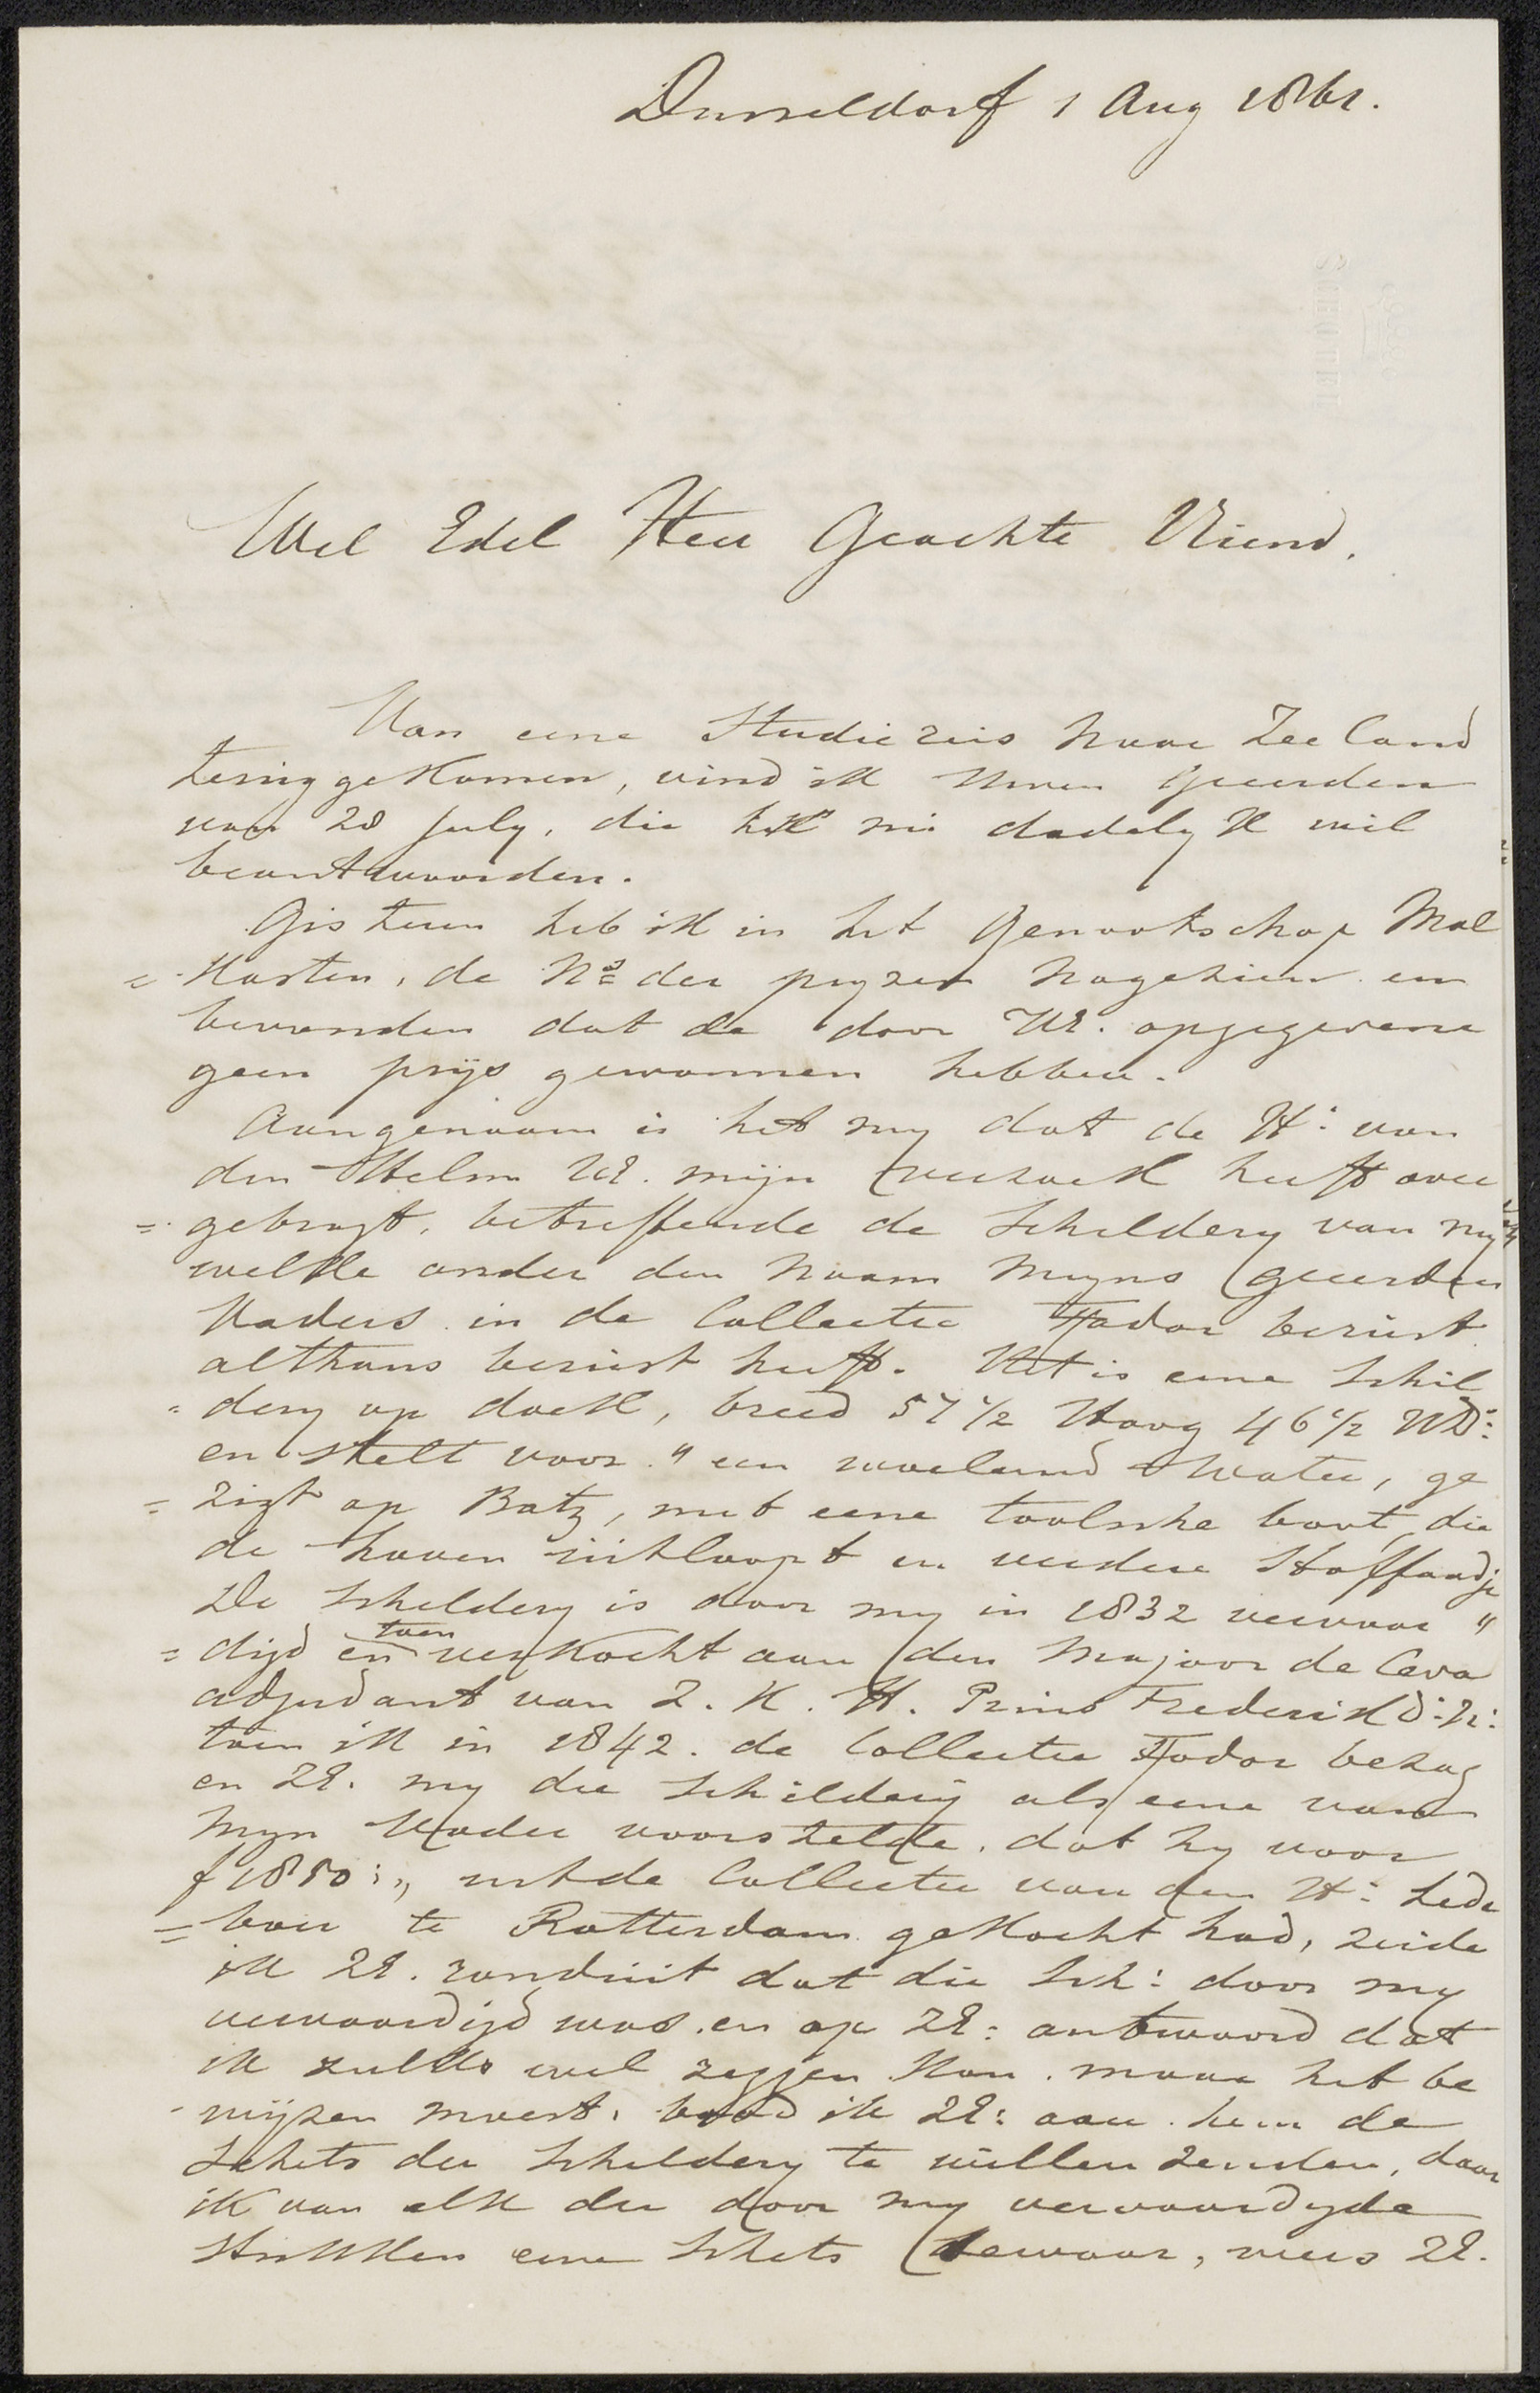 Dusseldorf 1 Aug 1861.
Wel Edel Heer Geachte Vriend.
Van eene Studiereis naar Zeeland
teruggekomen, vind ik Uwen geeerden
van 28 July, die ik nu dadelyk wil
beantwoorden.
Gisteren heb ik in het Genootschap Mal
=kasten, de Nos der pryzen nagezien en
bevonden dat de door UE. opgegevene
geen prijs gewonnen hebben.
Aangenaam is het my dat de H: van
den Helm UE. mijn verzoek heeft over
=gebragt, betreffende de Schildery van my
welke onder den naam myns geeerden
Vaders in de Collectie Fodor berust
althans berust heeft. Het is eene Schil
=dery op doek, breed 57 1/2 Hoog 46 1/2 ND:
en stelt voor "een woelend Water, ge
=zigt op Batz, met eene toolsche boot, die
de haven uitloopt en verdere Stoffaadje
De Schildery is door my in 1832 vervaar "
=digd en toen verkocht aan den Majoor de Ceva
adjudant van Z. K. H. Prins Frederik d: N:
toen ik in 1842. de Collectie Fodor bezag
en ZE. my die Schilderij als eene van
Myn Vader voorstelde, dat hy voor
f 1850:,, uit de Collectie van den H: Lede
=boer te Rotterdam gekocht had, zeide
ik ZE. ronduit dat die Sch: door my
vervaardigd was. en op ZE: antwoord dat
ik zulks wel zeggen kon. maar het be
-wijzen moest, bood ik ZE: aan. hem de
Schets der Schildery te willen zenden, daar
ik van elk der door my vervaardigde
Stukken eene Schets bewaar, wees ZE.